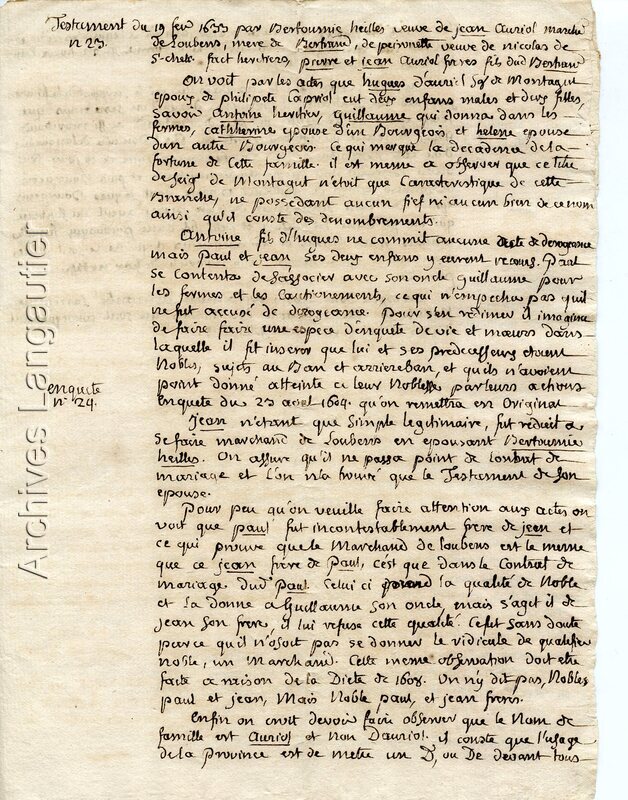 Testament du 19 fev 1633 par Bertoumie heilles veuve de jean Auriol marchd
n° 23.
de Loubens, mere de Bertrand, de peironelle veuve de nicolas de
St- fact heritiers pierre et jean Auriol freres fils dud Bertrand
On voit par les actes que hugues d'auriol Sgr de Montagut
epoux de philipote Capriol eut deux enfans males et deux filles
Savoir Antoine heritier, guillaume qui donna dans les
fermes, cathherine epouse d'un Bourgeois et helene epouse
d'un autre Bourgeois. Ce qui marque la decadence de la
fortune de Cette famille. il est meme a observer que ce titre
de Seigr de Montagut n'etoit que Caracteristique de cette
Branche, ne possedant aucun fief ni aucun bien de ce nom
ainsi qu'il conste des denombrements.
Antoine fils d'hugues ne commit aucune de derogeance
mais Paul et jean Ses deux enfans y eurent recours. Paul
se Contenta de s'associer avec son oncle Guillaume pour
les fermes et les Cautionements, ce qui n'empecha pas qu'il
ne fut accusé de derogeance. Pour s'en redimer il imagina
de faire faire une espece d'enquete de vie et mœurs dans
laquelle il fit inserer que lui et ses predecesseurs etoient
Nobles, sujets au Ban et arriereban, et qu'ils n'avoient
enquete
point donné atteinte a leur Noblesse par leurs actions
n° 24.
Enquete du 23 aoul 1604 qu'on remettra en Original
jean n'etant que Simple legitimaire, fut reduit a
Se faire marchand de Loubens en epousant Bertoumie
heilles. On assure qu'il ne passa point de Contrat de
mariage et l'on n'a trouvé que le Testament de Son
epouse.
Pour peu qu'on veuille faire attention aux actes on
voit que paul fut incontestablement frere de jean et
ce qui prouve que le Marchand de Loubens est le meme
que ce jean frere de Paul, c'est que dans le Contrat de
mariage dud Paul. Celui ci prend la qualité de Noble
et la donne a Guillaume Son oncle, mais s'agit il de
jean Son frere, il lui refuse cette qualité. Ce fut Sans doute
parce qu'il n'osoit pas se donner le ridicule de qualifier
noble, un Marchand. Cette meme observation doit etre
faite a raison de la Diete de 1608. On n'y dit pas, Nobles
paul et jean, Mais Noble paul, et jean freres.
Enfin on croit devoir faire observer que le Nom de
famille est Auriol et non Dauriol. il conste que l'usage
de la province est de metre un D, ou De devant tous
Archives Langautier